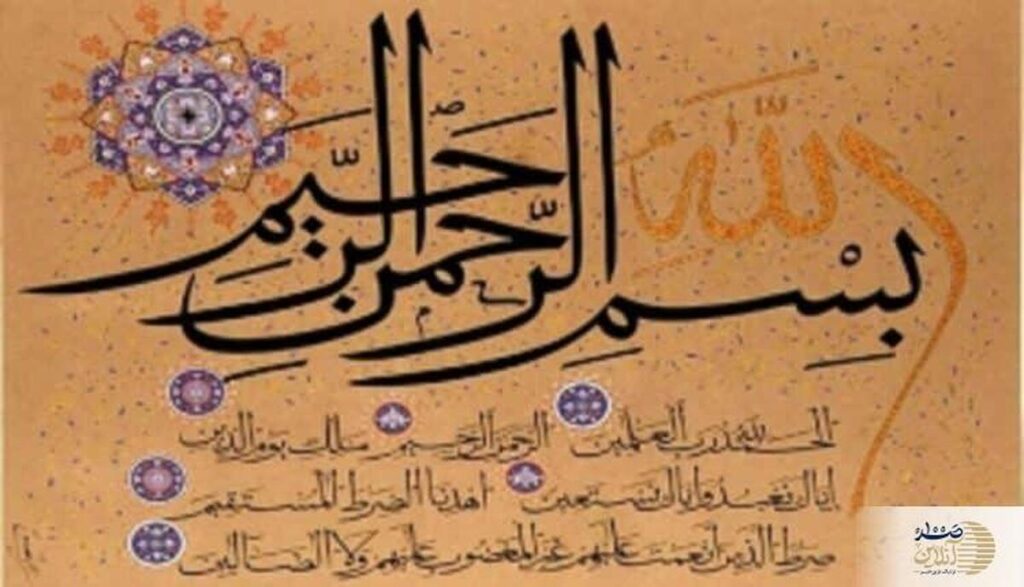 بِسْمِ اللّٰهِ الرَّحْمٰنِ الرَّحِيمِ
الحمد لله رب العلمين الرحمن الرحيم ملك يوم الدين
اياك نعبد واياك نستعين اهدنا الصرط المستقيم
صرط الذين انعمت عليهم غير المغضوب عليهم ولا الضالين
صدا
آنلاین